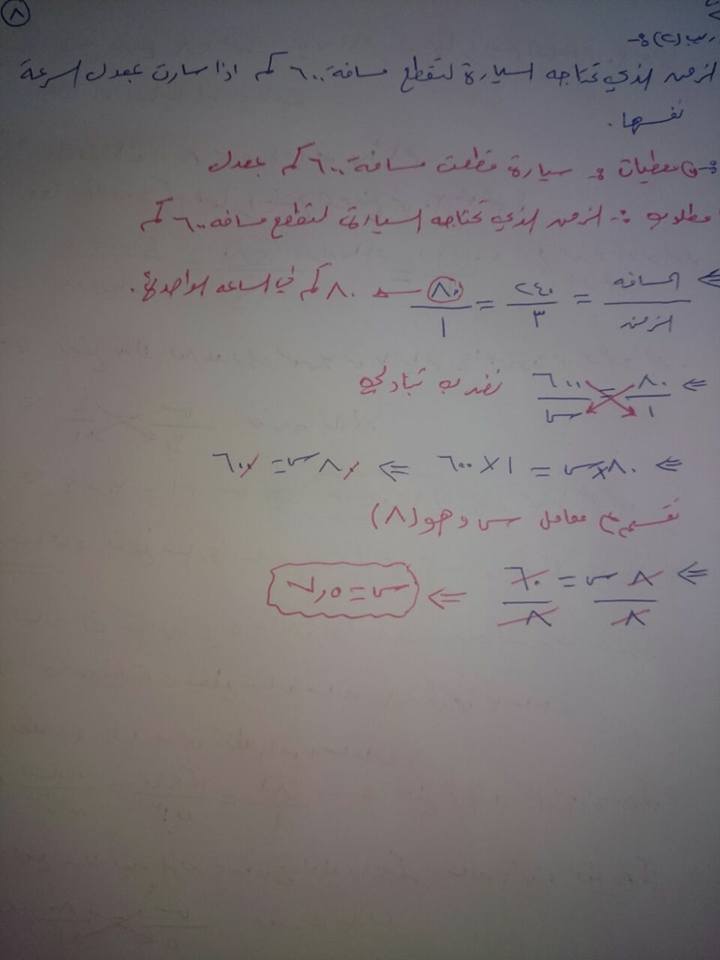 ٨
الزمن الذي تحتاجه السيارة لتقطع مسافة ٦٠٠ كم اذا سارت بمعدل السرعة
نفسها.
معطيات :- سيارة قطعت مسافة ٦٠٠ كم بمعدل
مطلوب :- الزمن الذي تحتاجه السيارة لتقطع مسافه ٦٠٠ كم
⇐ المسافه / الزمن = ٢٤٠ / ٣ = ٨٠ / ١ ← ٨٠ كم في الساعه الواحدة.
⇐ ٨٠ / ١ = ٦٠٠ / س نضرب تبادلي
⇐ ٨٠ × س = ١ × ٦٠٠ ⇐ ٨٠ س = ٦٠٠
نقسم ع معامل س وهو (٨)
⇐ ٨ س / ٨ = ٦٠ / ٨ ⇐ س = ٧,٥